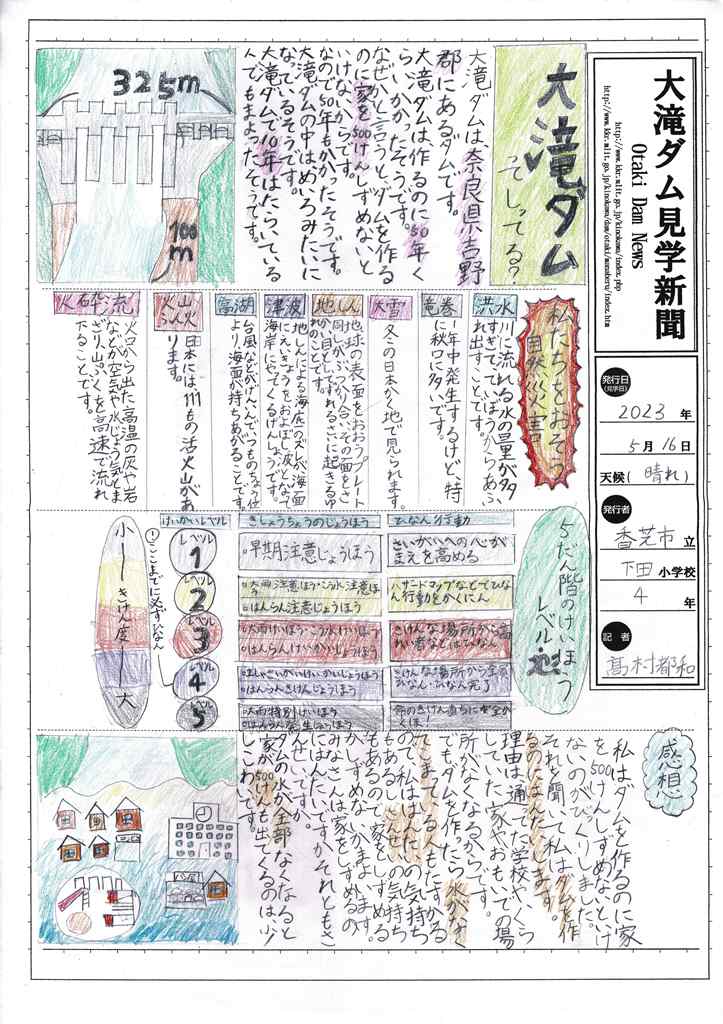 大滝ダム見学新聞
Otaki Dam News
http://www.kkr.mlit.go.jp/kinokawa/index.php
発行日
(見学日)
2023年
5月16日
天候(晴れ)
発行者
香芝市立
下田小学校
4年
記者
髙村都和
大滝ダム
てしってる?
大滝ダムは、奈良県吉野
郡にあるダムです。
大滝ダムは作るのに50年く
らいかかったそうです。
なぜかと言うと、ダムを作る
のに家を500けんしずめないと
いけないからです。
なので50年もかかったそうです。
大滝ダムの中はめいろみたいに
なっているそうです。
大滝ダムで10年はたらいている
人でもまよったそうです。
325m
100m
私たちをおそう
自然災害
洪水
川に流れる水の量が多
すぎてていぼうからあふ
れ出すことです。
竜巻
1年中発生するけど、特
に秋口に多いです。
大雪
冬の日本かく地で見られます。
地しん
地球の表面をおおうプレート
同しがぶつかり合い、その面をさ
かい目としてずれるさいに起きるゆ
れのことです。
津波
地しんによる海底のズレが海面
にえいきょうをおよぼし、波となって
海岸にやってくるげんしょうです。
高湖
台風などがげんいんでいつものちょう位
より、海面が持ちあがることです。
火山ふん火
日本には111もの活火山があ
ります。
火砕流
火口から出た高温の灰や岩
などが空気や水じょう気とま
ざり、山ふくを高速で流れ
下ることです。
5だん階のけいほう
レベル
けいかいレベル
きしょうちょうのじょうほう
ひなん行動
レベル1
早期注意じょうほう
さいがいへの心が
まえを高める
レベル2
大雨注意ほう・こう水注意ほう
はんらん注意じょうほう
ハザードマップなどでひな
ん行動をかくにん
レベル3
大雨けいほう・こう水けいほう
はんらんけいかいじょうほう
きけんな場所から高
れい者などはひなん
レベル4
土しゃさいがいけいかいじょうほう
はんらんきけんじょうほう
きけんな場所から全員
ひなん・ひなん完了
レベル5
大雨特別けいほう
はんらん発生じょうほう
命のきけん直ちに安全かくほ!
ここまでに必ずひなん
小―きけん度―大
感想
私はダムを作るのに家
を500けんしずめないといけ
ないのがびっくりしました。
それを聞いて私はダムを作
るのにはんたいします。
理由は通ってた学校やくら
していた家やおもいでの場
所がなくなるからです。
でもダムを作ったら水がなく
てこまってる人もたすかる
ので、私ははんたいの気持ち
もあるし、さんせいの気持ち
もあるので、家をしずめる
かしずめないかまよいます。
みなさんは家をしずめるの
にはんたいですか、それともさ
んせいですか。
ダムの水が全部なくなると
家が500けんも出てくるのは少
しこわいです。